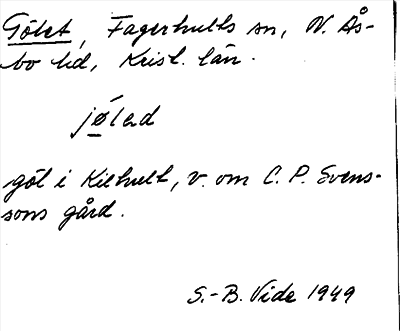 Gölet, Fagerhults sn, N. Ås-
bo hd, Krist. län.
jǿled
göl i Kilhult, v. om C. P. Svens-
sons gård.
S.-B. Vide 1949